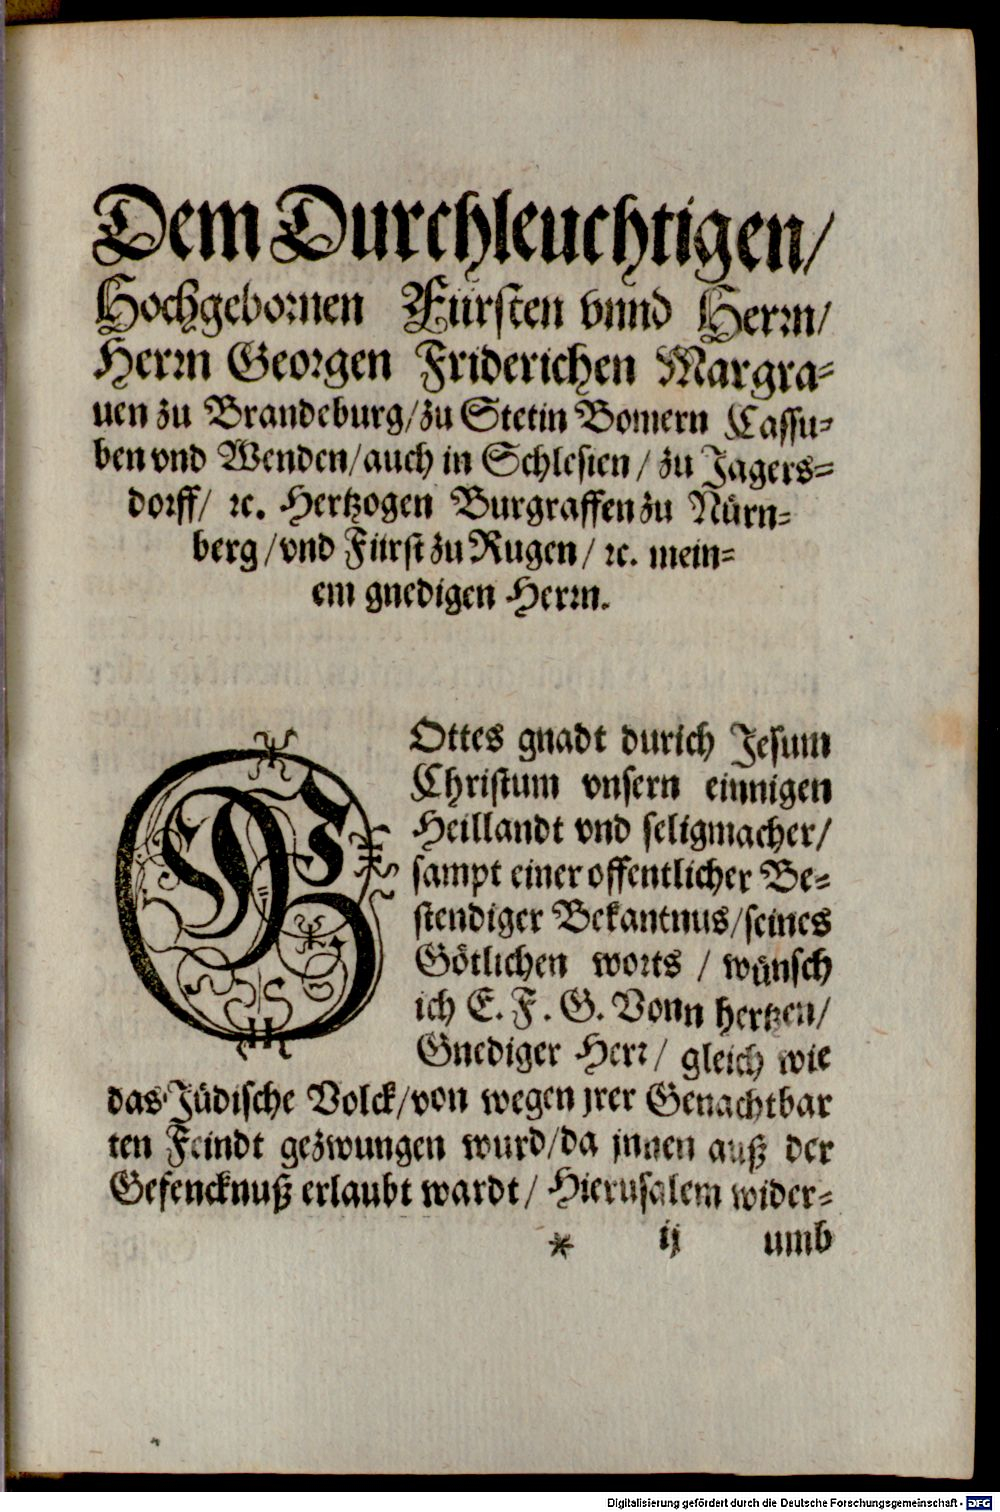 Dem Durchleuchtigen/
Hochgebornen Fürsten vnnd Herrn/
Herrn Georgen Friderichen Margra-
uen zu Brandeburg/zu Stetin Bomern Cassu-
ben vnd Wenden/auch in Schlesien/ zu Jagers-
dorff/ ꝛc. Hertzogen Burgraffen zu Nürn-
berg/vnd Fürst zu Rugen/ ꝛc. mein-
em gnedigen Herrn.
GOttes gnadt durich Jesum
Christum vnsern einnigen
Heillandt vnd seligmacher/
sampt einer offentlicher Be-
stendiger Bekantnus/seines
Götlichen worts / wünsch
ich E. F. G. Vonn hertzen/
Gnediger Herr/ gleich wie
das Jüdische Volck/von wegen jrer Genachtbar
ten Feindt gezwungen wurd/da jnnen auß der
Gefencknuß erlaubt wardt/ Hierusalem wider-
* ij umb
Digitalisierung gefördert durch die Deutsche Forschungsgemeinschaft - DFG